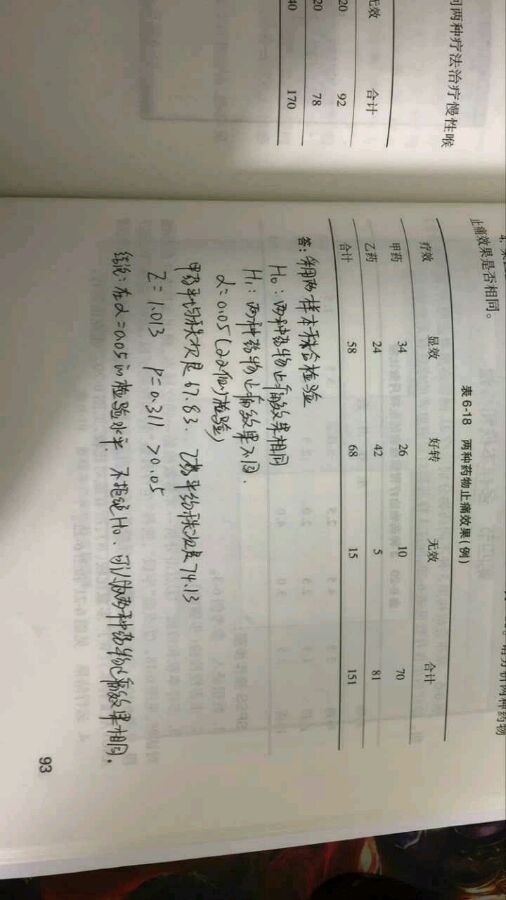 问两种疗法治疗慢性喉
无效 合计
20 92
20 78
40 170
止痛效果是否相同。
请分析两种药物
表6-18 两种药物止痛效果(例)
疗效 显效 好转 无效 合计
甲药 34 26 10 70
乙药 24 42 5 81
合计 58 68 15 151
答:采用两样本秩合检验
H₀:两种药物止痛效果相同
H₁:两种药物止痛效果不同.
α=0.05(双侧检验)
平均秩次是67.83. 乙药平均秩次是74.13
Z=1.013 P=0.311 >0.05
结论:在α=0.05的检验水平.不拒绝H₀.可认为两种药物止痛效果相同.
93